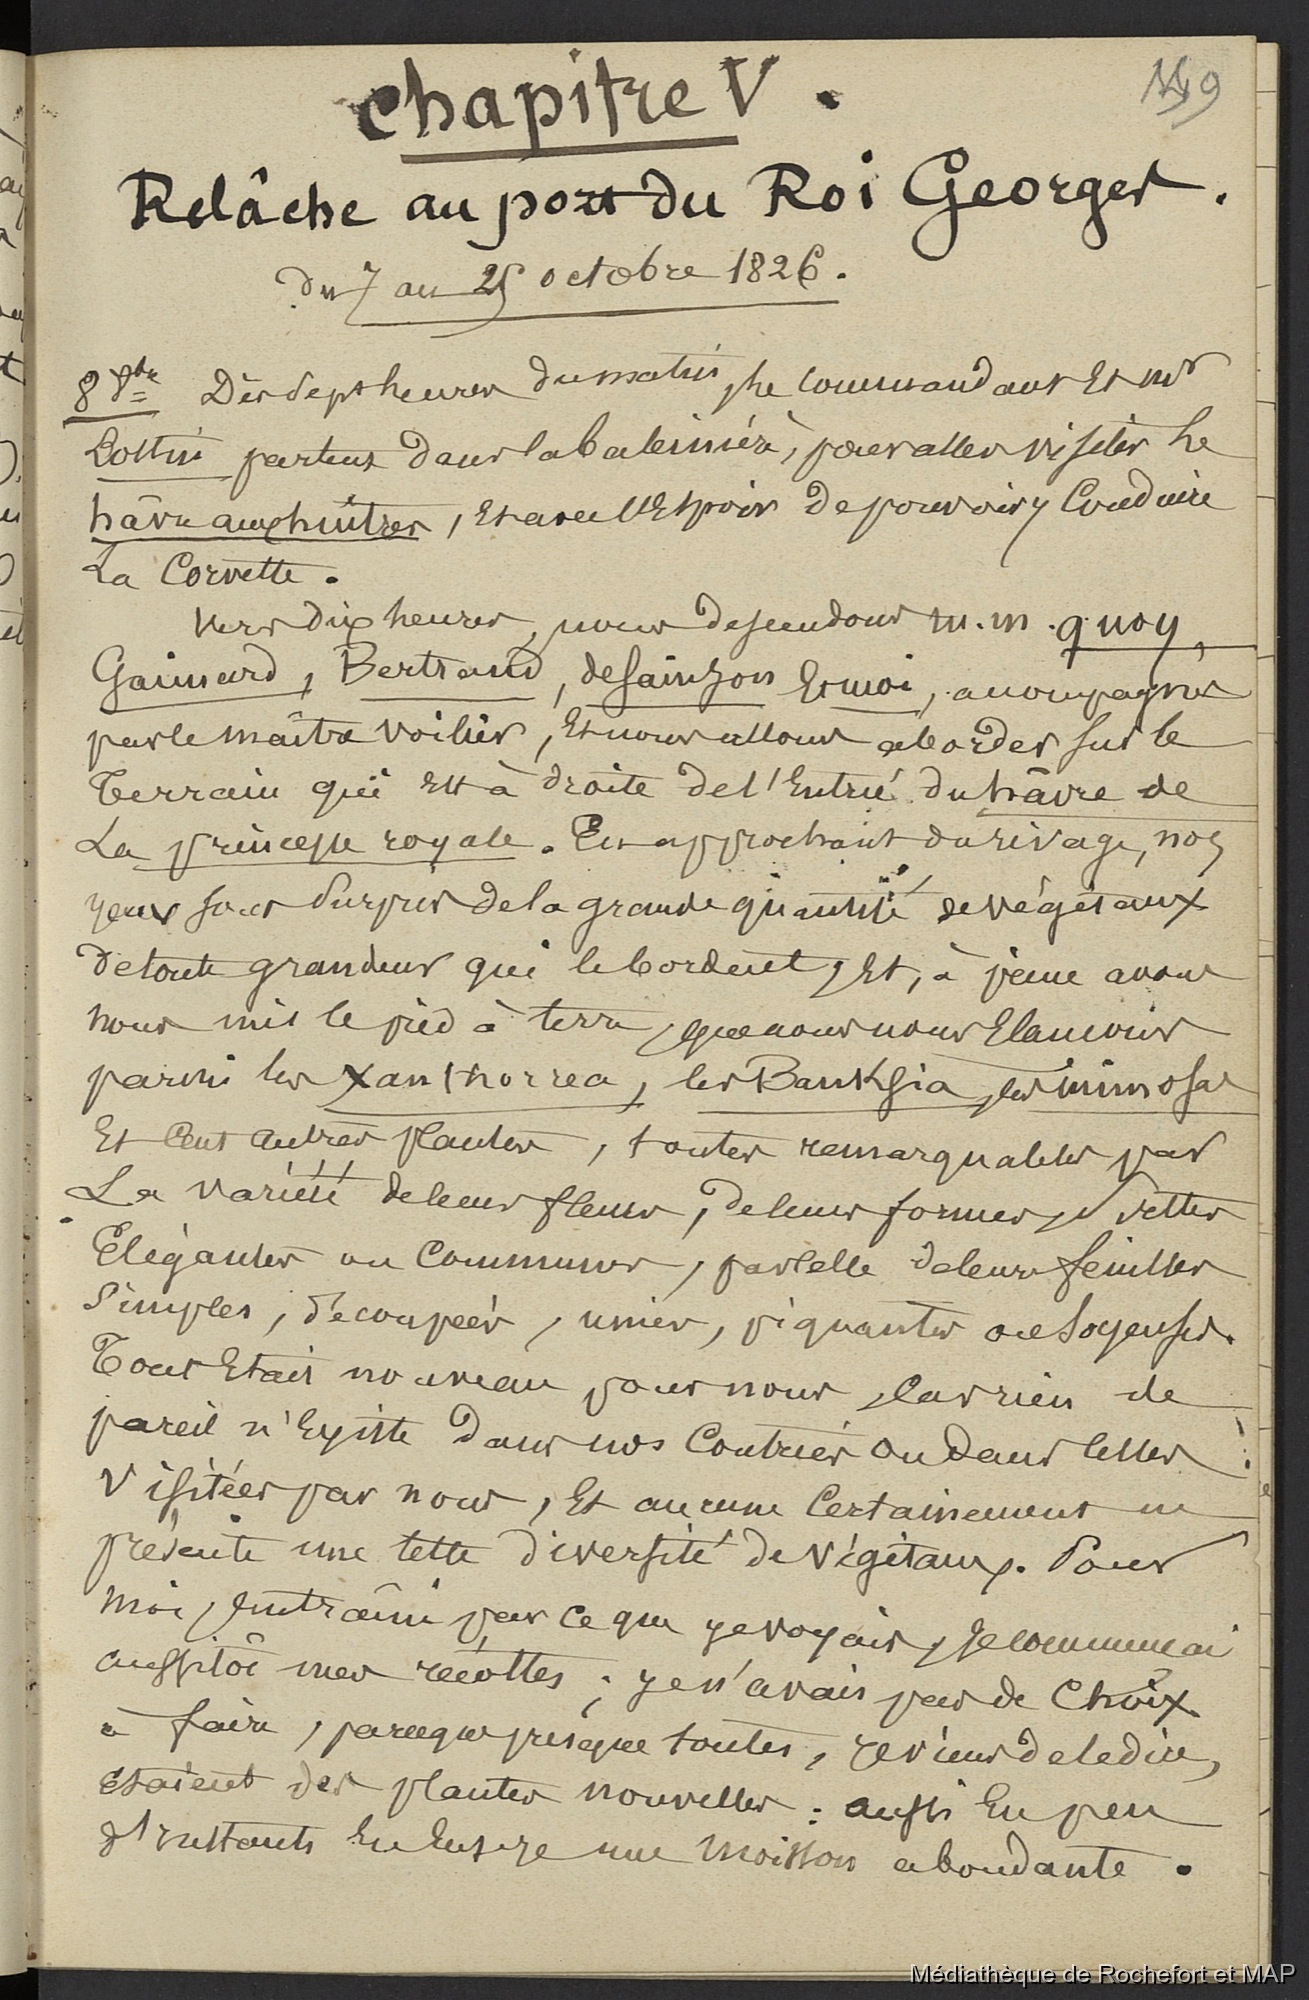 Chapitre V.
149
Relâche au port du Roi Georges.
du 7 au 25 octobre 1826.
8 8bre Dès sept heures du matin, le commandant Et Mr
Lottin partent dans la baleinière, pour aller visiter le
hâvre aux huitres, Et avec l'Espoir de pouvoir y Conduire
La Corvette.
Vers dix heures, nous descendons m.m. quoy,
Gaimard, Bertrand, de Sainson Et moi, accompagnés
par le maître voilier, Et nous allons aborder sur le
Terrain qui Est à droite de l'Entrée du hâvre de
La princesse royale. En approchant du rivage, nos
yeux sont surpris de la grande quantité de végétaux
de toute grandeur qui le bordent, Et, à peine avons
nous mis le pied à terre, que nous nous Elançons
parmi les Xanthorrea, les Banksia, les mimosas
Et Cent autres plantes, toutes remarquables par
La variété de leurs fleurs, de leurs formes,
Elégantes ou Communes, par celle de leurs feuilles
Simples, découpées, unies, piquantes ou Soyeuses.
Tout Etait nouveau pour nous, Car rien de
pareil n'Existe dans nos Contrées ou dans celles
visitées par nous, Et aucune Certainement ne
présente une telle diversité de végétaux. Pour
moi, Entraîné par ce que je voyais, je commençai
aussitôt mes récoltes; je n'avais pas de Choix
à faire, parceque presque toutes, je viens de le dire,
étaient des plantes nouvelles: aussi En peu
d'instants En Eus-je une moisson abondante.
Médiathèque de Rochefort et MAP